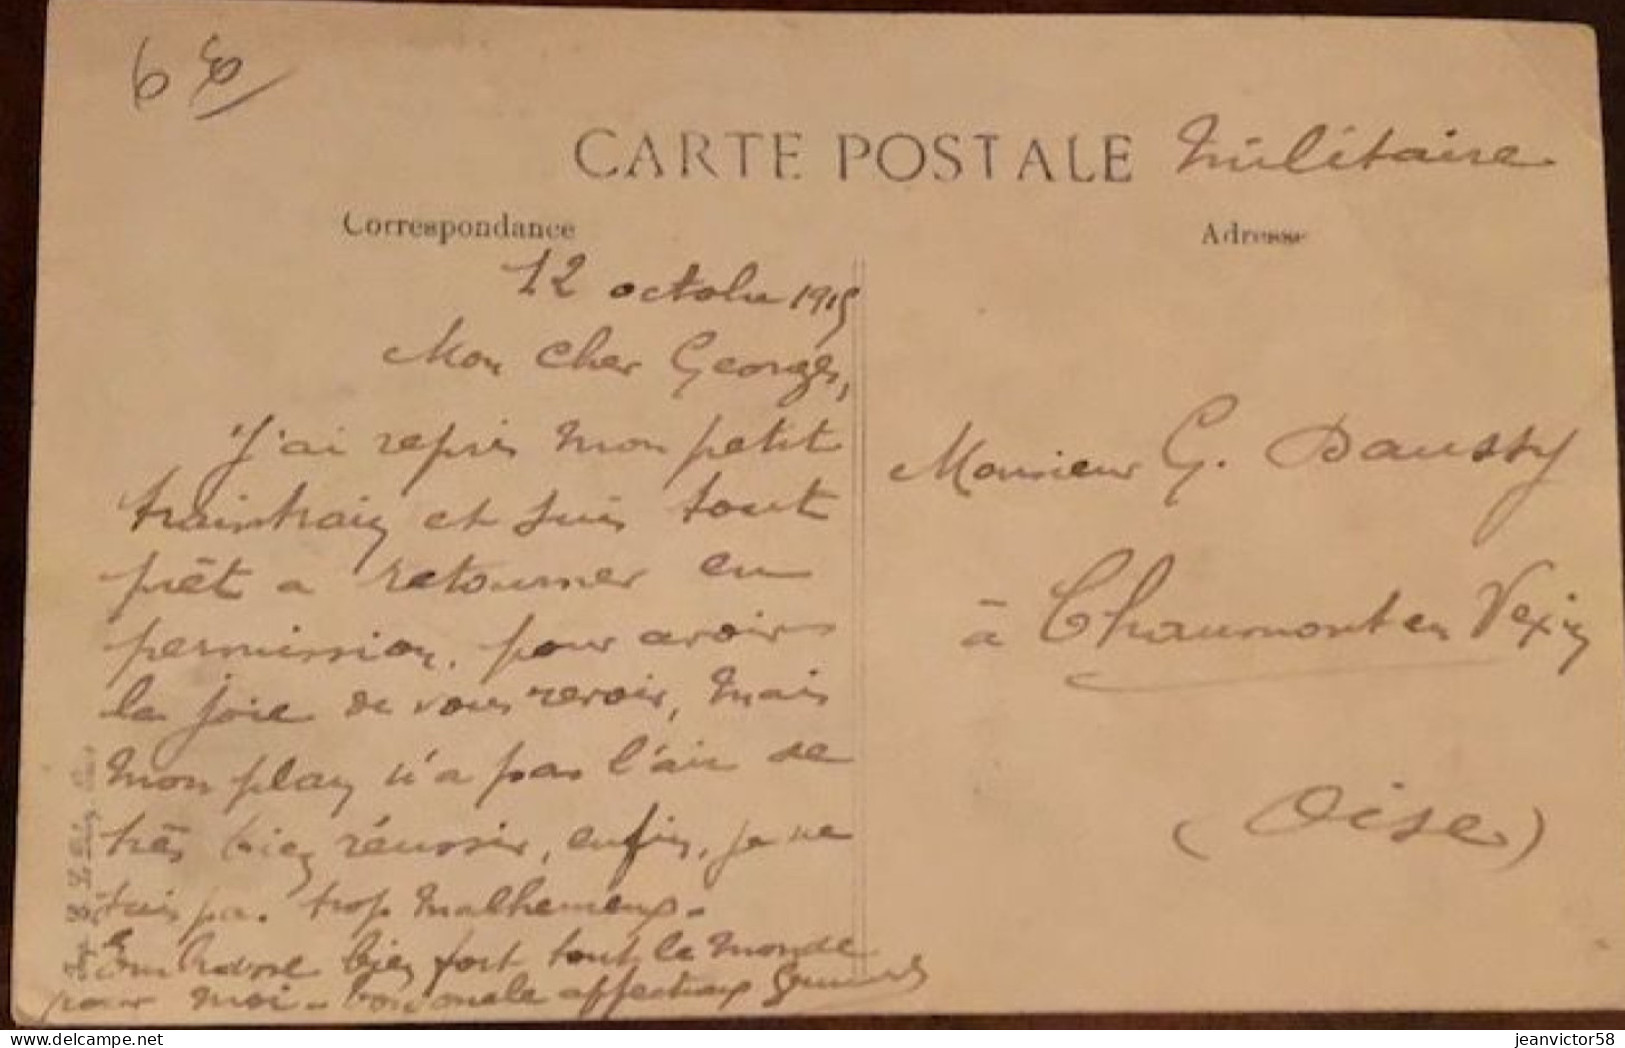 CARTE POSTALE Militaire
Correspondance
Adresse
12 octobre 1915
Mon cher Georges,
J'ai repris mon petit
traintrain et suis tout
prêt a retourner en
permission, pour avoir
la joie de vous revoir, mais
mon plan n'a pas l'air de
très bien réussir, enfin, je ne
suis pas trop malheureux.
Embrasse bien fort tout le monde
pour moi. affectueux
Monsieur G. Daussy
à Chaumont en Vexin
(Oise)
delcampe.net
jeanvictor58